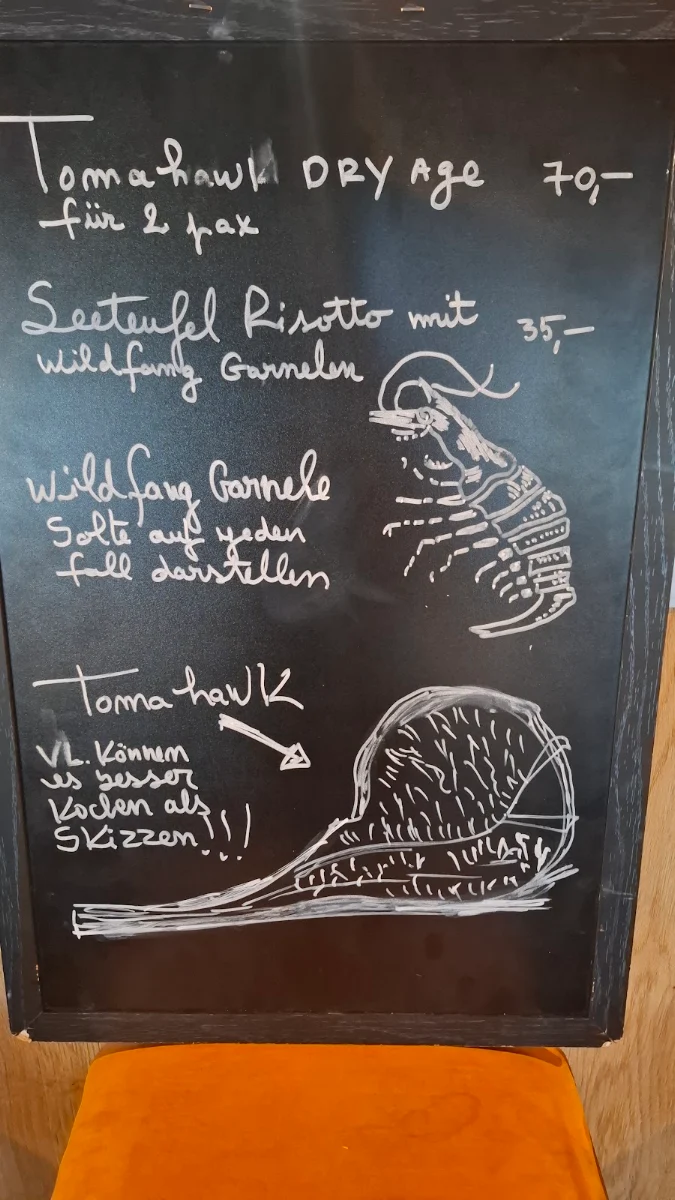 Tomahawk DRY Age 70,-
für 2 pax
Seeteufel Risotto mit 35,-
Wildfang Garnelen
Wildfang Garnele
Solte auf yeden
fall darstellen
Tomahawk
VL. Können
es besser
Kochen als
Skizzen!!!